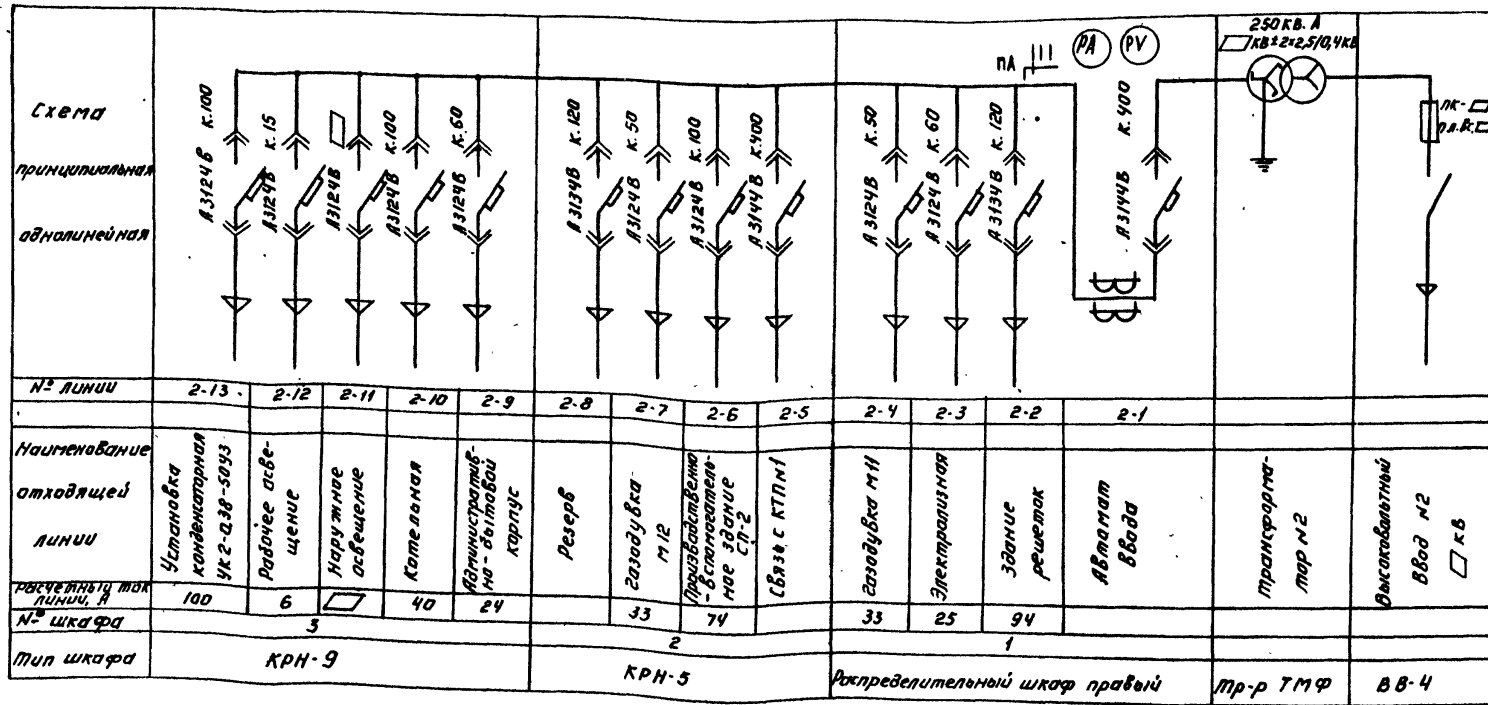 Схема
принципиальная
однолинейная
А3124В к.100
А3124В к.15
А3124В
А3124В к.100
А3124В к.60
А3134В к.120
А3124В к.50
А3124В к.100
А3144В к.400
А3124В к.50
А3124В к.60
А3134В к.120
ПА
РА
PV
А3144В к.400
250 КВ.А
КВ±2×2,5/0,4кВ
ПК-
пл.вс.
№ линии
2-13. 2-12 2-11 2-10 2-9 2-8 2-7 2-6 2-5 2-4 2-3 2-2 2-1
Наименование
отходящей
линии
Установка
конденсаторная
УК2-0.38-50УЗ
Рабочее осве-
щение
Наружное
освещение
Котельная
Административ-
но-бытовой
корпус
Резерв
Газодувка
М12
Производственно
-вспомогатель-
ное здание
СП-2
Связь с КТП№1
Газодувка М11
Электролизная
Здание
решеток
Автомат
ввода
Трансформа-
тор №2
Высоковольтный
Ввод №2
кВ
Расчетный ток
линии, А
100 6 40 24 33 74 33 25 94
№ шкафа
3 2 1
Тип шкафа
КРН-9 КРН-5 Распределительный шкаф правый Тр-р ТМФ ВВ-4